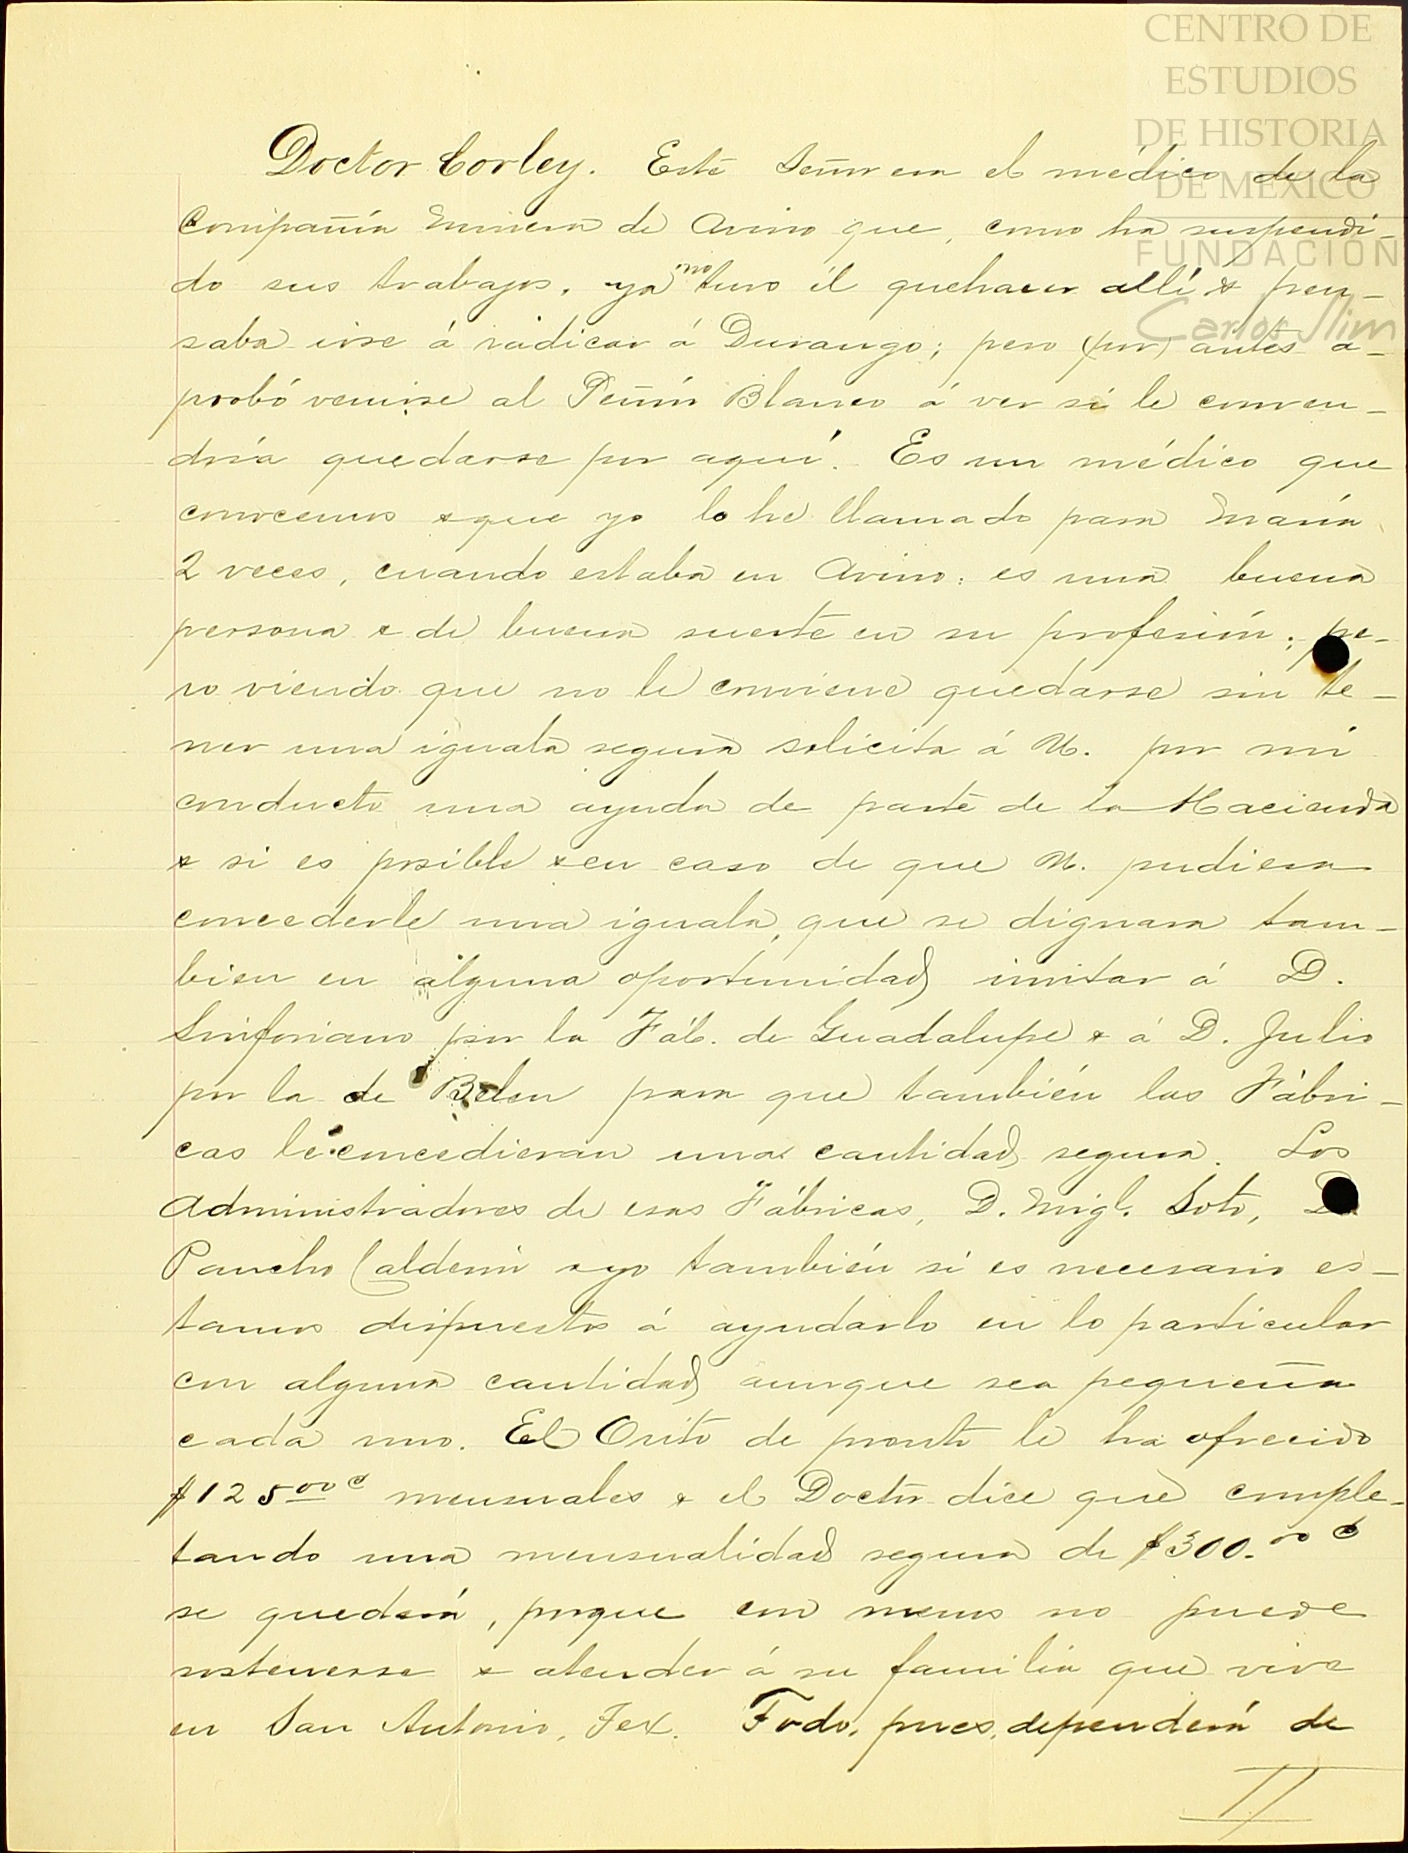 CENTRO DE
ESTUDIOS
DE HISTORIA
DE MÉXICO
FUNDACIÓN
Carlos Slim
Doctor Corley. Este Señor era el médico de la
Compañía Minera de Avino que, como ha suspendi-
do sus trabajos, ya no tuvo él quehacer allí & pen-
saba irse á radicar á Durango; pero (por) antes a-
probó venirse al Peñón Blanco á ver si le conven-
dría quedarse por aquí. Es un médico que
conocemos & que yo lo he llamado para María
2 veces, cuando estaba en Avino: es una buena
persona & de buena suerte en su profesión; pe-
ro viendo que no le conviene quedarse sin te-
ner una iguala segura solicita á U. por mi
conducto una ayuda de parte de la Hacienda
& si es posible & en caso de que U. pudiera
concederle una iguala, que se dignara tam-
bien en alguna oportunidad invitar á D.
Sinforiano por la Fáb. de Guadalupe & á D. Julio
por la de Belen para que también las Fábri-
cas le concedieran una cantidad segura. Los
Administradores de esas Fábricas, D. Migl. Soto, D.
Pancho Calderón & yo también si es necesario es-
tamos dispuestos á ayudarlo en lo particular
con alguna cantidad aunque sea pequeña
cada uno. El Orito de pronto le ha ofrecido
$125.00 c mensuales & el Doctor dice que comple-
tando una mensualidad segura de $300.00 c
se quedará, porque con menos no puede
sostenerse & atender á su familia que vive
en San Antonio, Tex. Todo, pues, dependerá de
II